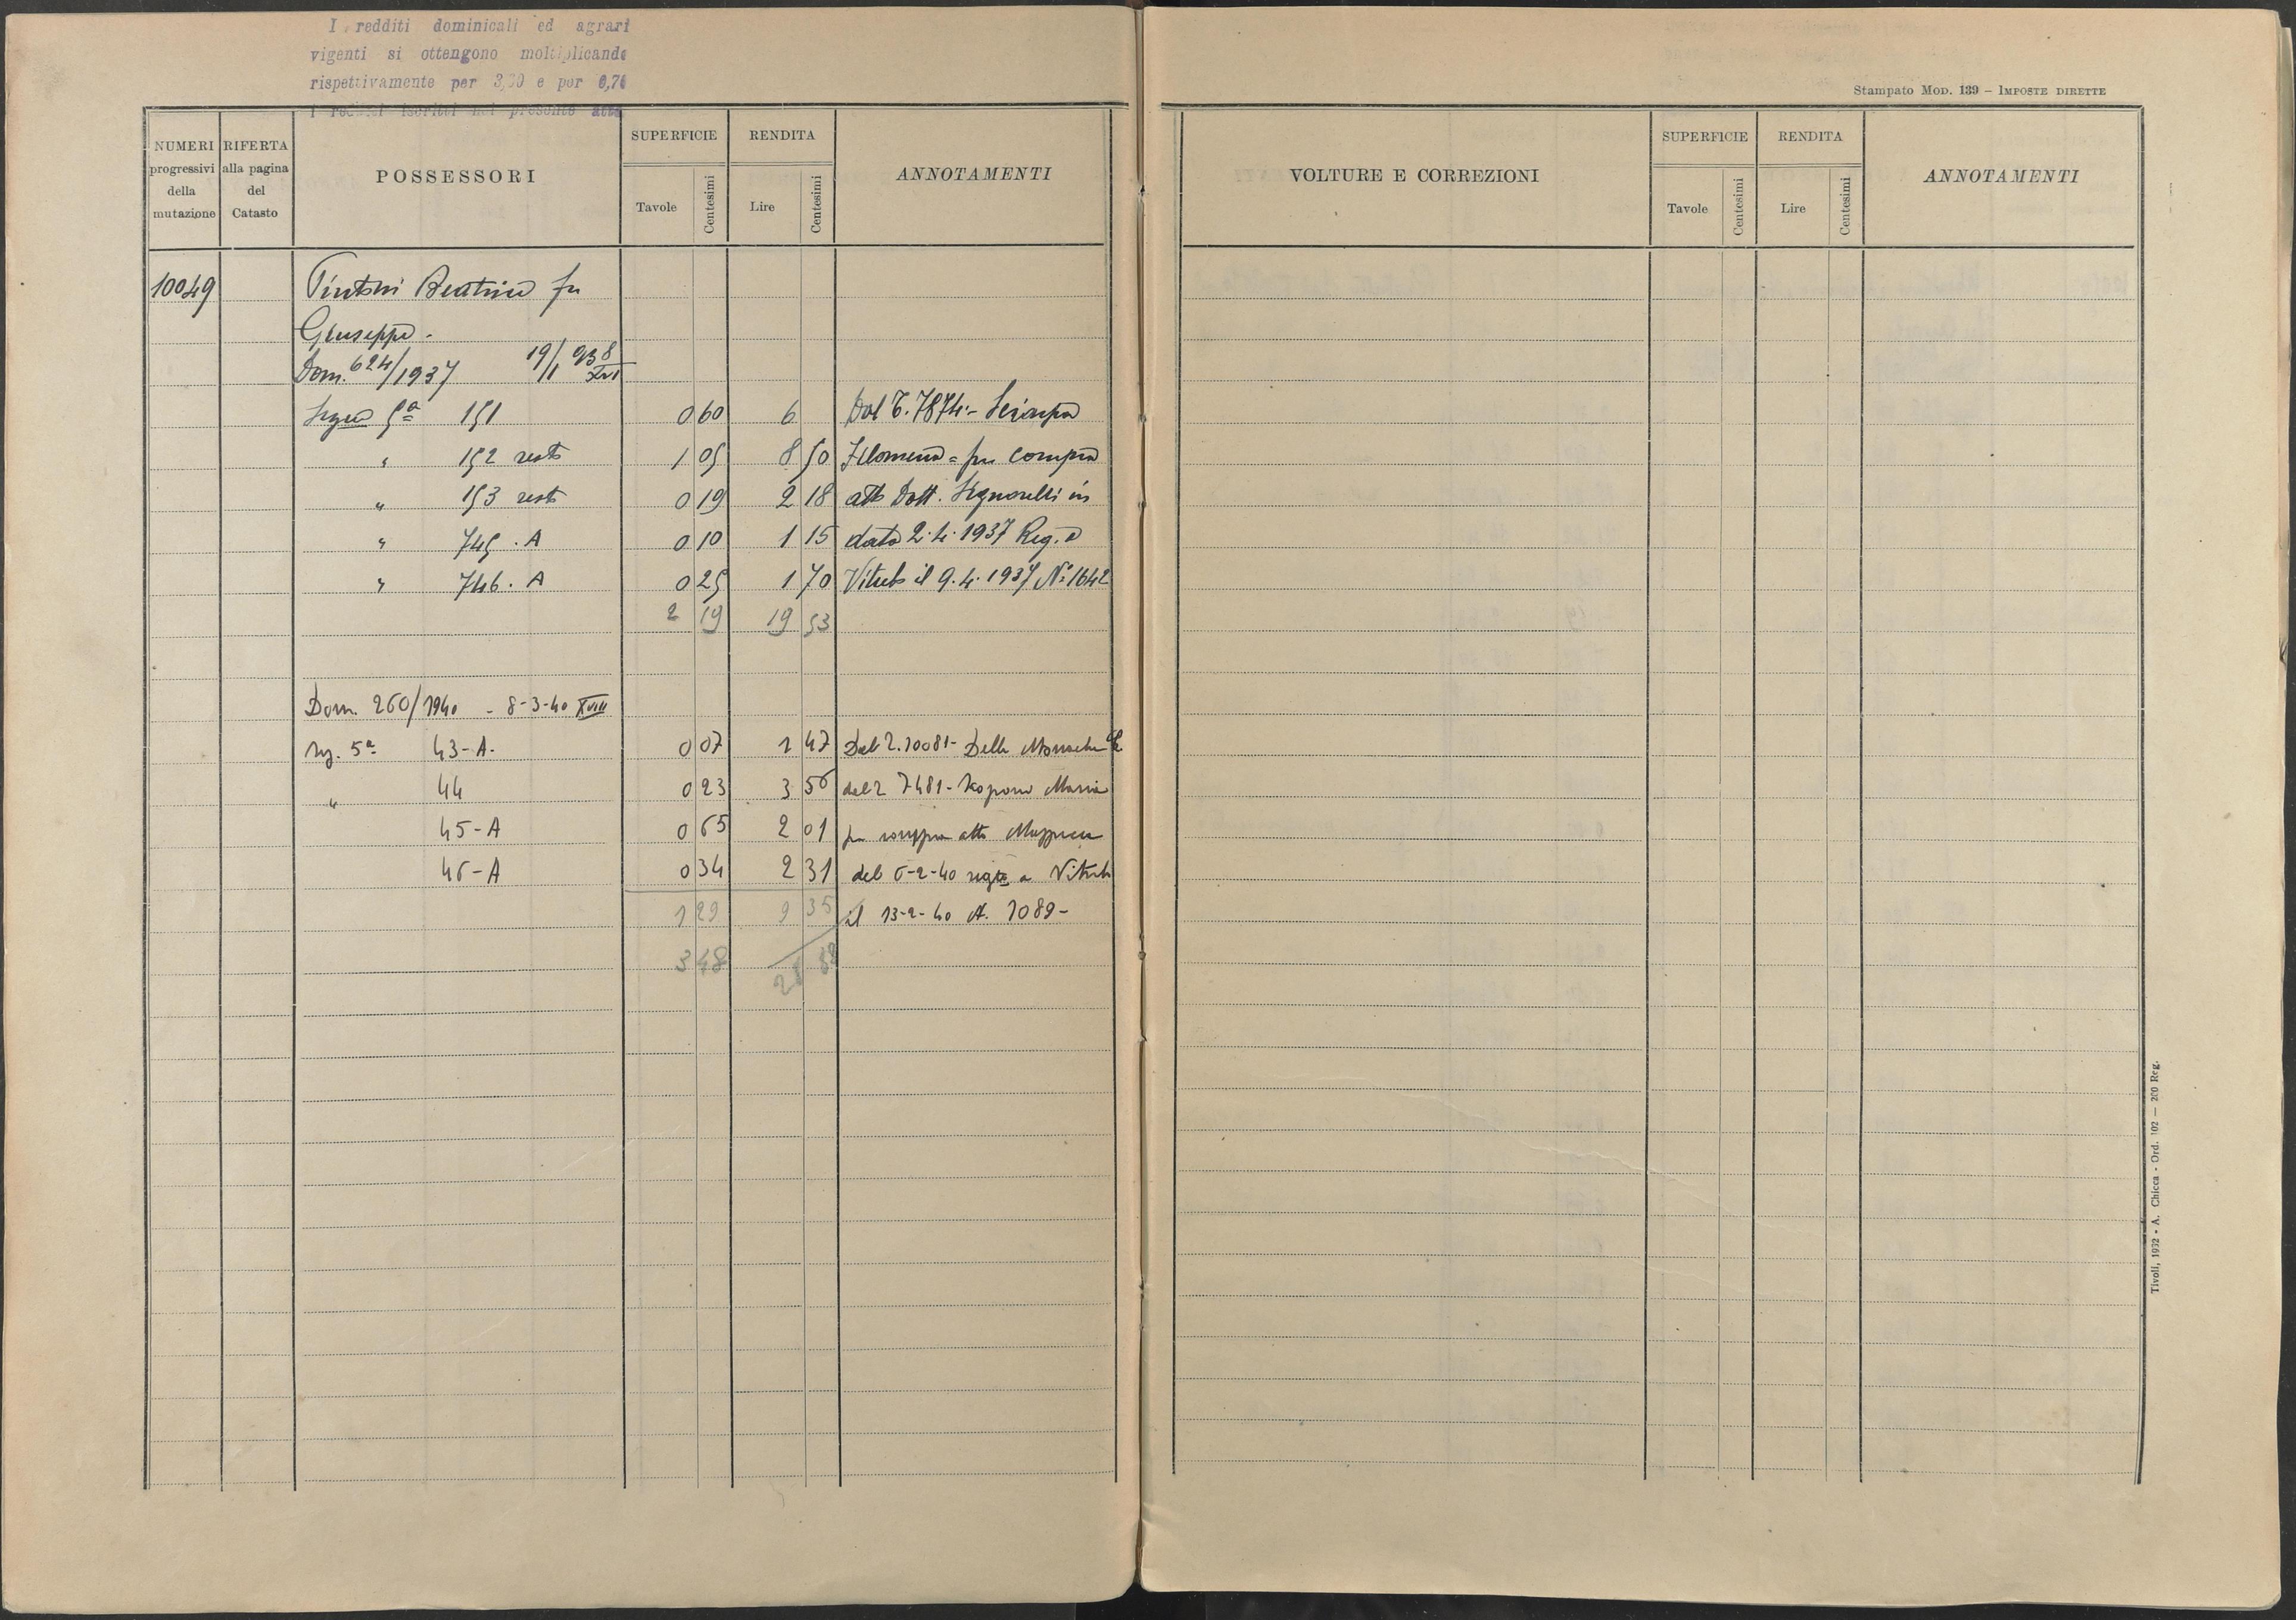 I redditi dominicali ed agrari
vigenti si ottengono moltiplicando
rispettivamente per 3,30 e per 0,70
i redditi iscritti nel presente atto
Stampato Mod. 139 – Imposte dirette
NUMERI progressivi della mutazione
RIFERTA alla pagina del Catasto
POSSESSORI
SUPERFICIE
Tavole
Centesimi
RENDITA
Lire
Centesimi
ANNOTAMENTI
VOLTURE E CORREZIONI
SUPERFICIE
Tavole
Centesimi
RENDITA
Lire
Centesimi
ANNOTAMENTI
10049 Beatrice fu
Giuseppe -
Dom. 624/1937 19/1 938 XVI
Segue 5ª 151 0 60 6 Dal T. 7874 - Sciarpa
" 152 resto 1 05 8 50 Filomena = per compra
" 153 resto 0 19 2 18 atto Dott. Signorelli in
" 745 . A 0 10 1 15 data 2.4.1937 Reg. a
" 746 . A 0 25 1 70 Viterbo il 9.4.1937 Nº 1642
2 19 19 53
Dom. 260/1940 - 8-3-40 XVIII
Seg. 5ª 43-A- 0 07 1 47 Dal 2. 10081 - Delle Monache
" 44 0 23 3 56 dal 2 7481 - Maria
45-A 0 65 2 01 per compra atto
46-A 0 34 2 31 del 6-2-40 regto a Viterbo
1 29 9 35 il 13-2-40 N. 1089-
3 48 28 88
Tivoli, 1932 - A. Chicca - Ord. 102 — 200 Reg.